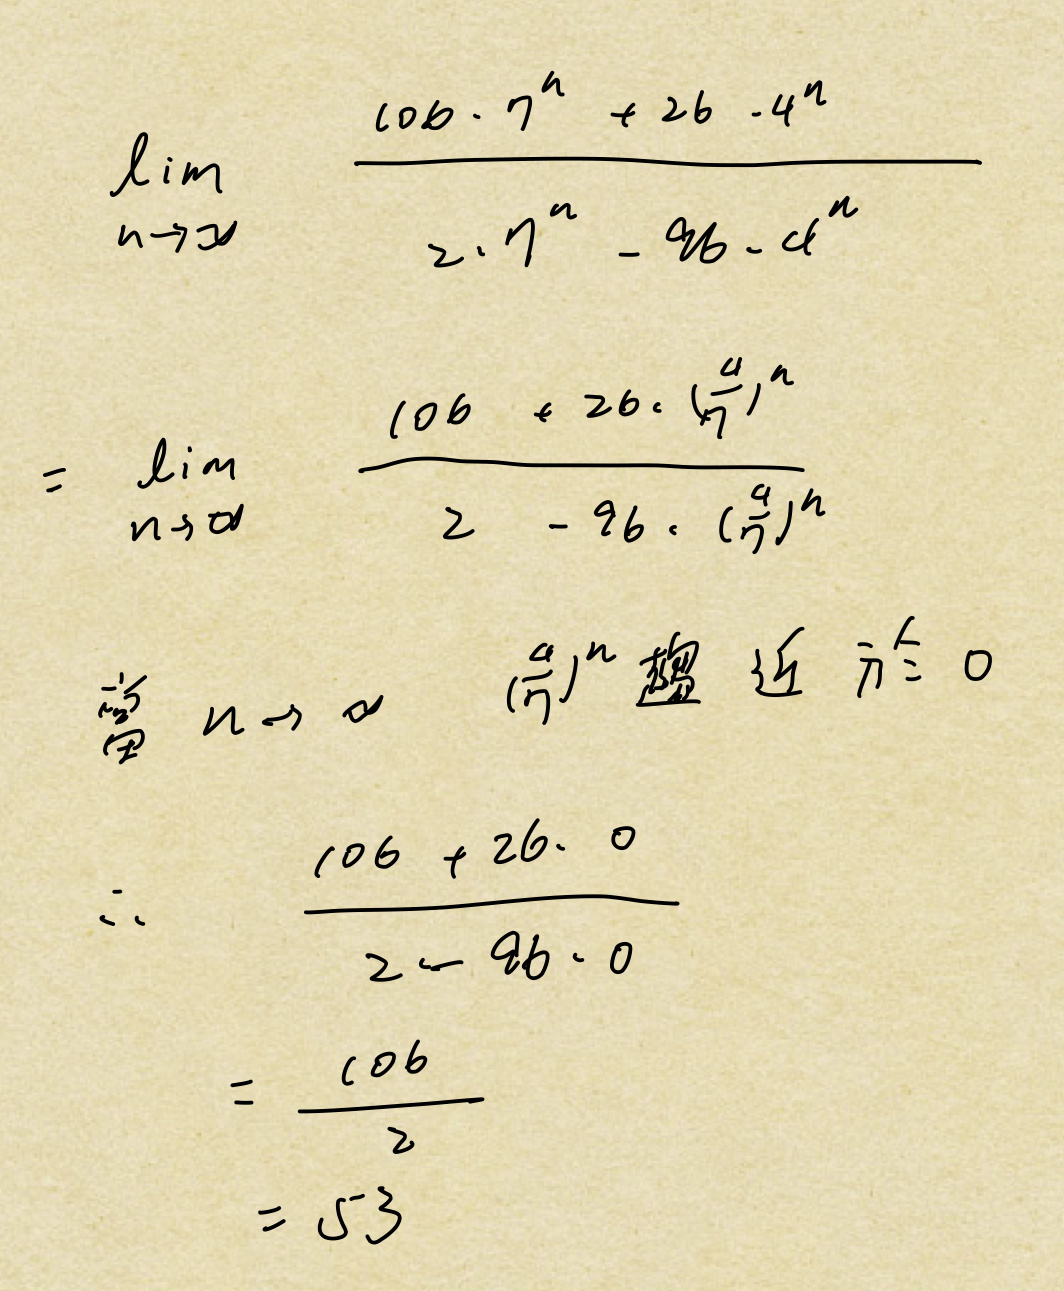 lim n→∞ (106 · 7^n + 26 · 4^n) / (2 · 7^n - 96 · 4^n)
= lim n→∞ (106 + 26 · (4/7)^n) / (2 - 96 · (4/7)^n)
當 n→∞ (4/7)^n 近於 0
∴ (106 + 26 · 0) / (2 - 96 · 0)
= 106 / 2
= 53